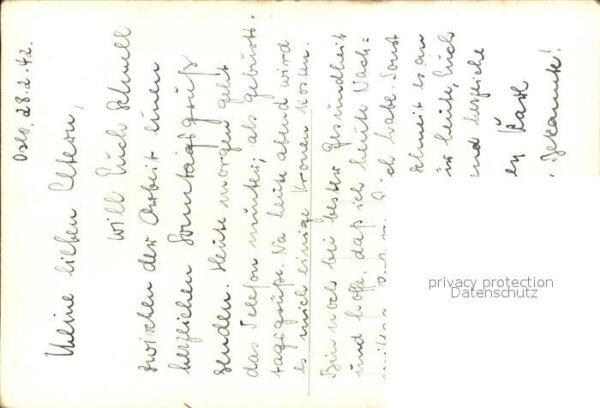 Oslo, 28.2.42.
Meine lieben Eltern,
will Euch schnell
zwischen der Arbeit einen
herzlichen Sonntagsgruß
senden. Heute morgen geht
das Telefon munter, als Geburts-
tagsgrüße. Na heute abend wird
es mich einige Kronen kosten.
Bin noch bei bester Gesundheit
und hoffe, daß ich heute Nach-
mittag
ich habe. Sonst
schneit es an
heute, Euch
und herzliche
Karl
Bekannte!
privacy protection
Datenschutz